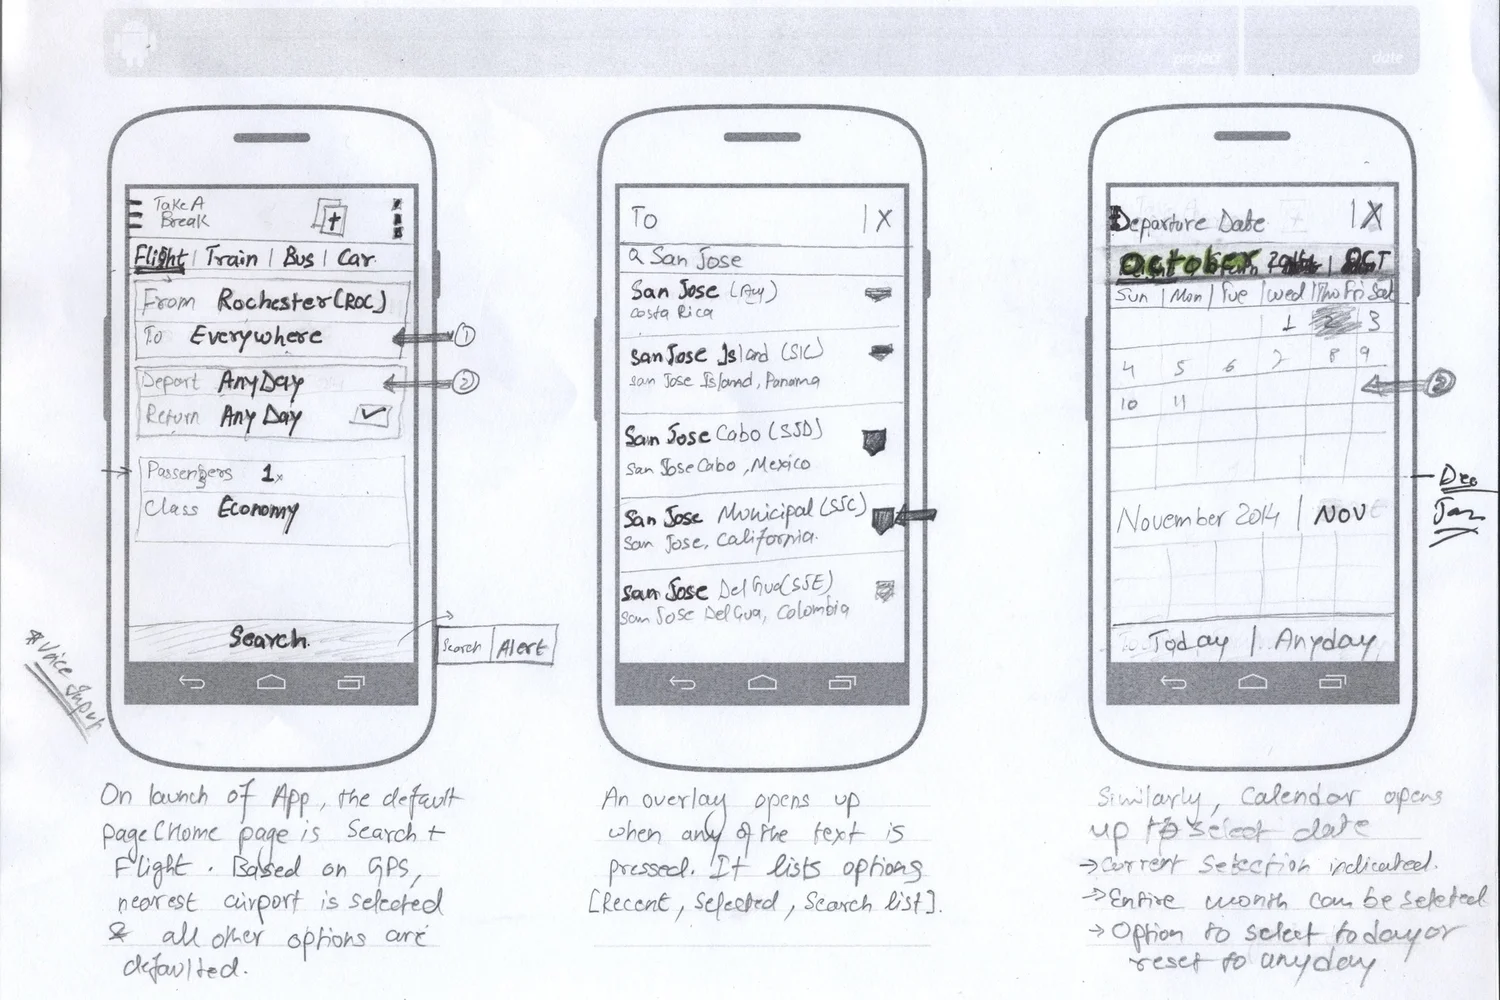 project
date
Take A
Break
Flight | Train | Bus | Car
From Rochester (ROC)
To Everywhere
1
Depart Any Day
2
Return Any Day
Passengers 1x
Class Economy
Search
Search | Alert
* Voice Input
On launch of App, the default
page (Home page is Search +
Flight. Based on GPS,
nearest airport is selected
& all other options are
defaulted.
To | X
San Jose
San Jose (Any)
Costa Rica
San Jose Island (SIC)
San Jose Island, Panama
San Jose Cabo (SJD)
San Jose Cabo, Mexico
San Jose Municipal (SJC)
San Jose, California.
San Jose Del Gua (SJE)
San Jose Del Gua, Colombia
An overlay opens up
when any of the text is
pressed. It lists options
[Recent, Selected, Search list].
Departure Date | X
October 2014 | OCT
Sun | Mon | Tue | Wed | Thu Fri Sat
1 2 3
4 5 6 7 8 9
10 11
Dec
Jan
November 2014 | NOV
Today | Anyday
Similarly, Calendar opens
up to select date
→ Current Selection indicated.
→ Entire month can be selected
→ Option to select today or
reset to anyday